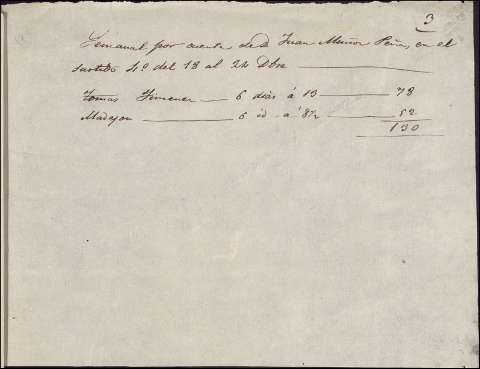 3
Semanal por cuenta de D Juan Muñoz Peñas en el
surtido 4º del 18 al 24 Dbre
Tomas Ximenez 6 dias á 13 78
Madejon 6 id á 8½ 52
130